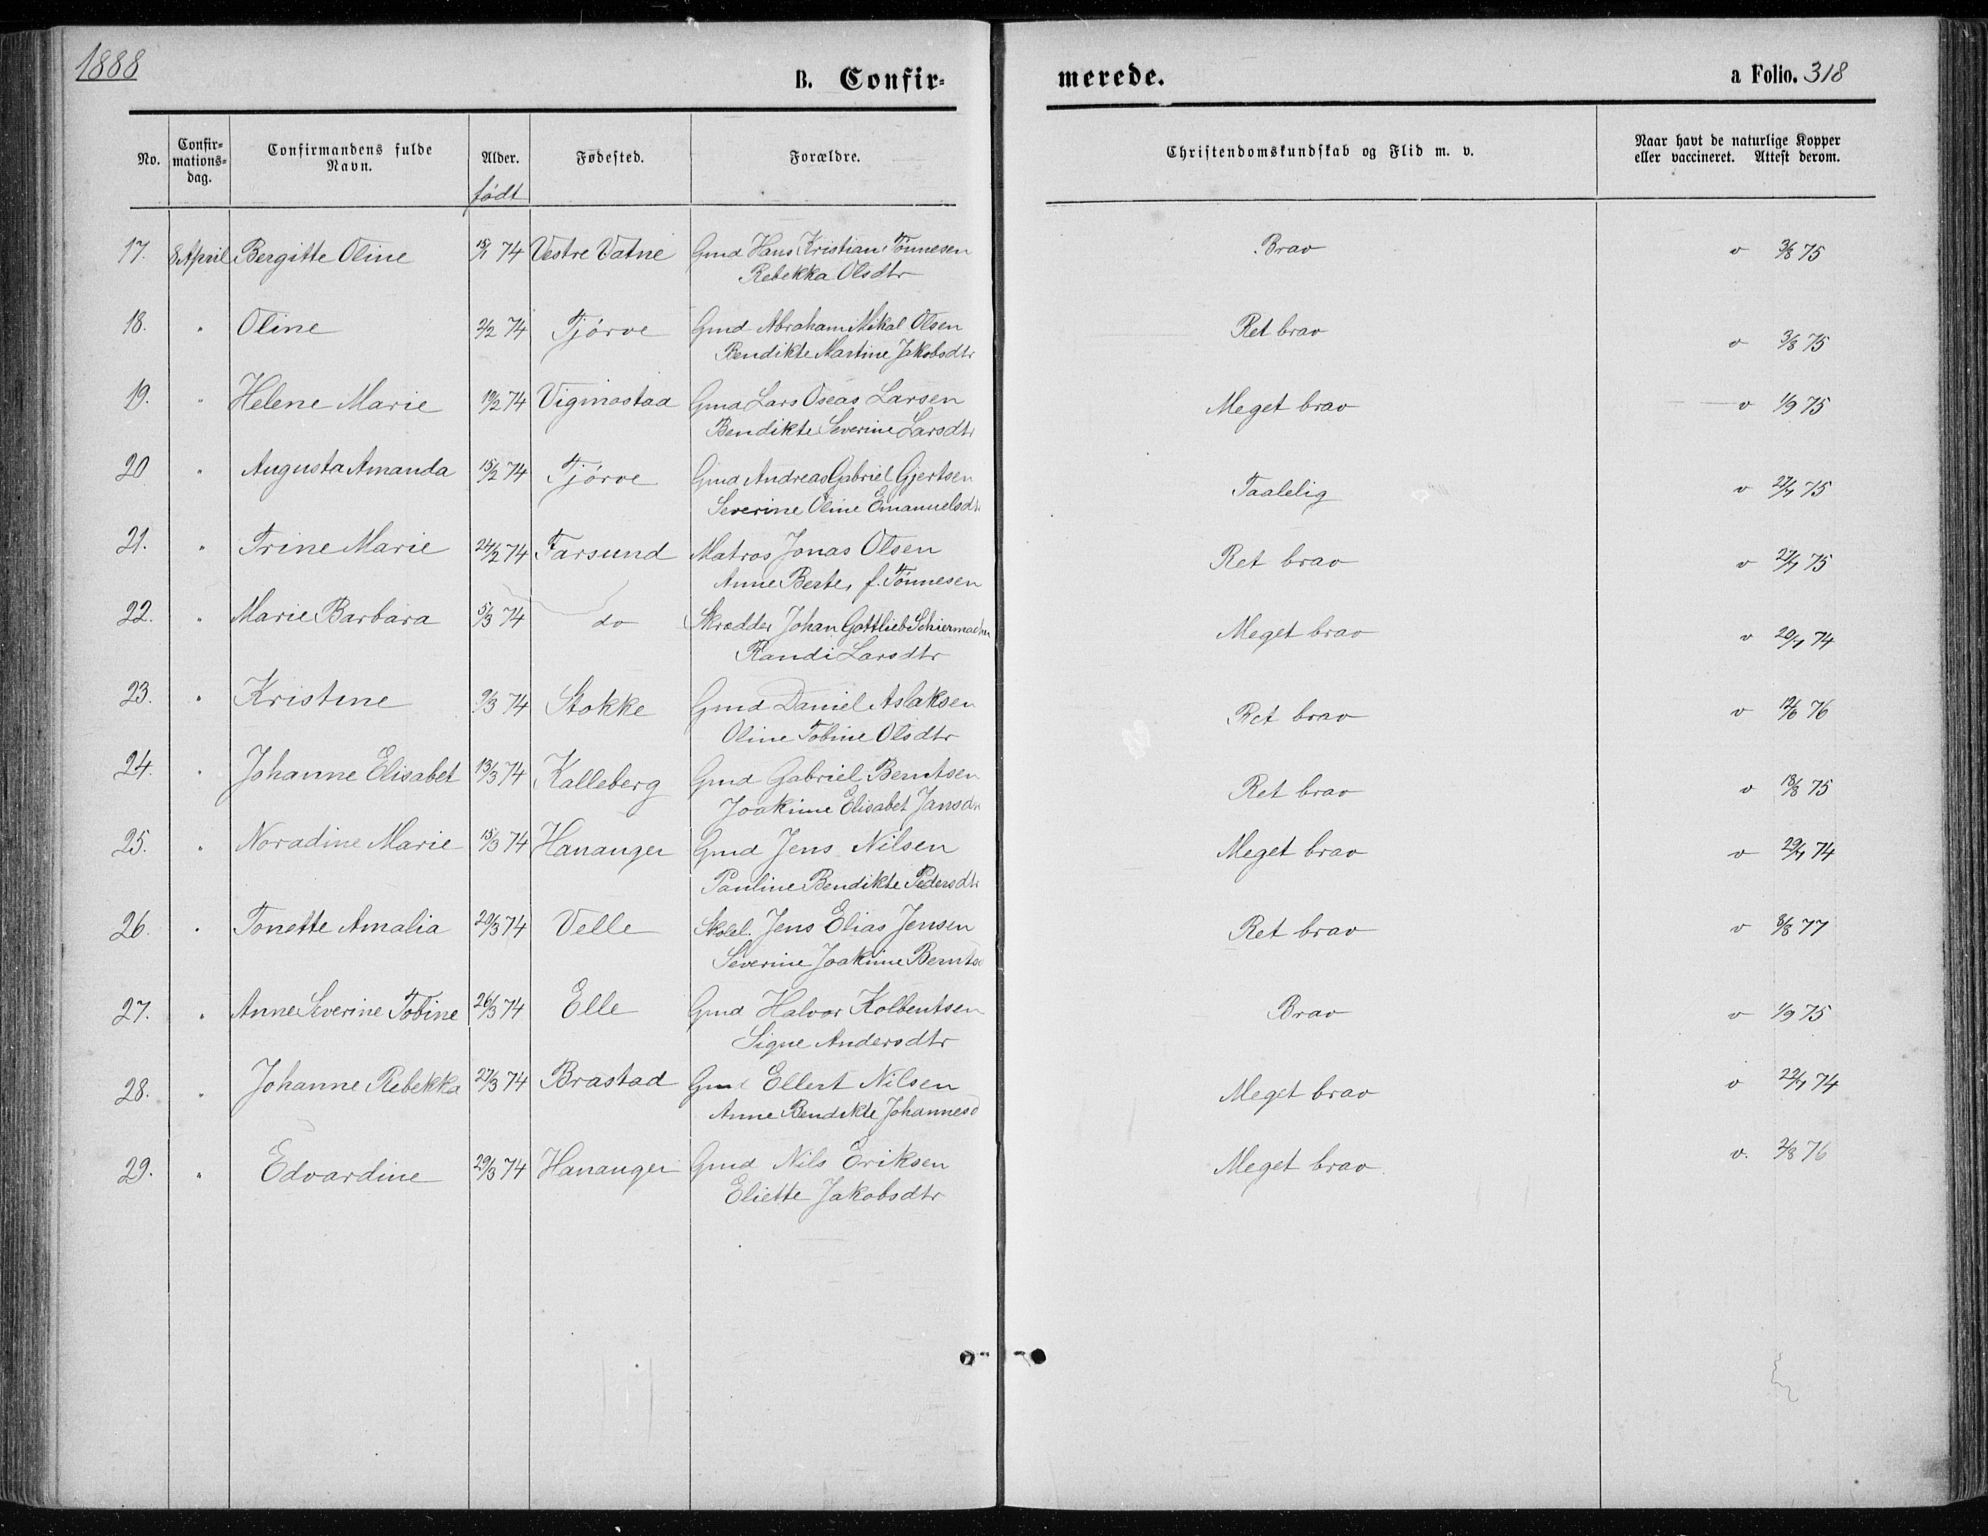 1888
B. Confir- merede. a Folio. 318
No. Confir-mations-dag. Confirmandens fulde Navn. Alder. født Fødested. Forældre. Christendomskundskab og Flid m. v. Naar havt de naturlige Kopper eller vaccineret. Attest derom.
17. 8 April Bergitte Oline 74 Vestre Vatne Gmd Hans Kristian Tønnesen Brav v 3/8 75
Rebekka Olsdtr
18. " Oline 2/2 74 Tjørve Gmd Abraham Mikal Olsen Ret brav v 3/8 75
Bendikte Martine Jakobsdtr
19. " Helene Marie 19/2 74 Vigmostad Gmd Lars Oseas Larsen Meget brav v 1/9 75
Bendikte Severine Larsdtr
20 " Augusta Amanda 15/2 74 Tjørve Gmd Andreas Gabriel Gjertsen Taalelig v 27/7 75
Severine Oline Emanuelsdt
21. " Trine Marie 24/2 74 Farsund Matros Jonas Olsen Ret brav v 27/7 75
Anne Berte, f. Tønnesen
22. " Marie Barbara 5/3 74 do Skrædder Johan Gottlieb Meget brav v 20/7 74
Randi Larsdtr
23. " Kristine 9/3 74 Stokke Gmd Daniel Aslaksen Ret brav v 12/6 76
Oline Tobine Olsdtr
24. " Johanne Elisabet 13/3 74 Kalleberg Gmd Gabriel Berntsen Ret brav v 18/8 75
Joakime Elisabet Jansd
25. " Noradine Marie 15/3 74 Hananger Gmd Jens Nilsen Meget brav v 29/7 74
Pauline Bendikte Pedersdt
26. " Tonette Amalia 20/3 74 Velle Skolel. Jens Elias Jensen Ret brav v 8/8 77
Severine Joakime Bernts
27. " Anne Severine Tobine 26/3 74 Elle Gmd Halvor Kolbentsen Brav v 1/9 75
Signe Andersdtr
28. " Johanne Rebekka 27/3 74 Brastad Gmd Ellert Nilsen Meget brav v 22/7 74
Anne Bendikte Johannesd
29. " Edvardine 29/3 74 Hananger Gmd Nils Eriksen Meget brav v. 2/8 76
Eliette Jakobsdtr